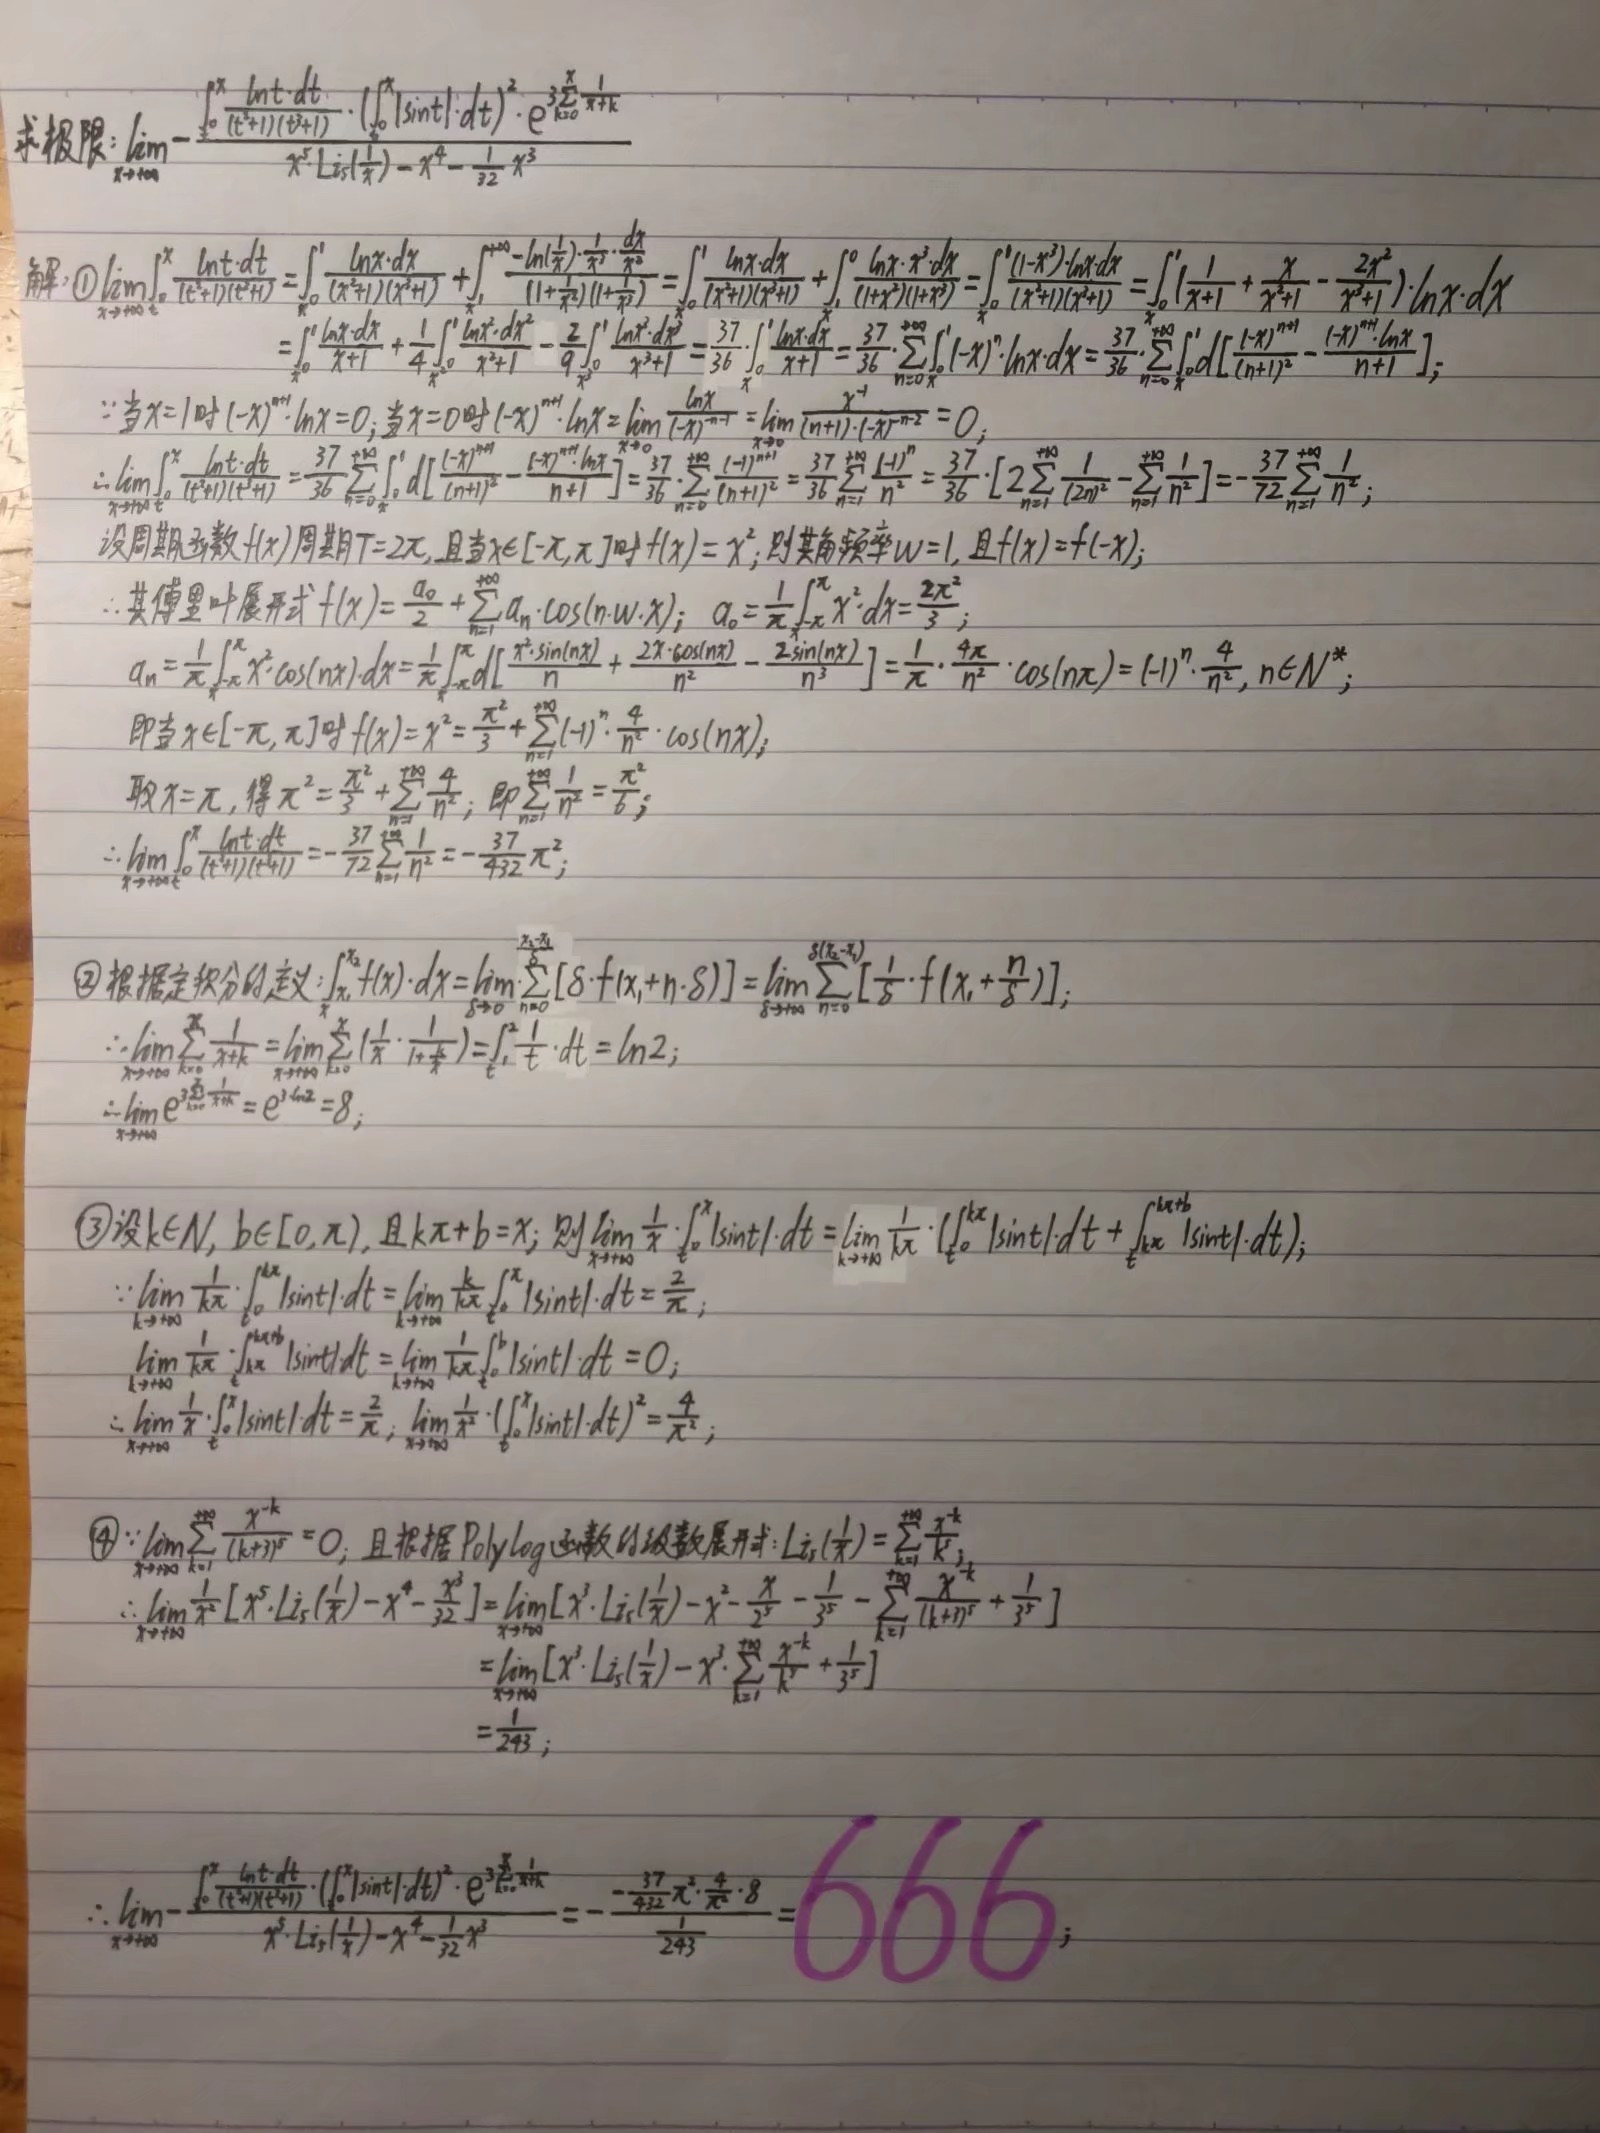 求极限: lim_{x→+∞} - \frac{∫_0^x \frac{lnt·dt}{(t²+1)(t³+1)}·(∫_0^x |sint|·dt)²·e^{3\sum_{k=0}^{x}\frac{1}{x+k}}}{x⁵·Li₅(\frac{1}{x}) - x⁴ - \frac{1}{32}x³}
解: ① lim_{x→+∞} ∫_0^x \frac{lnt·dt}{(t²+1)(t³+1)} = ∫_0^1 \frac{lnx·dx}{(x²+1)(x³+1)} + ∫_1^{+∞} \frac{-ln(\frac{1}{x})·\frac{1}{x³}·\frac{dx}{x²}}{(1+\frac{1}{x²})(1+\frac{1}{x³})} = ∫_0^1 \frac{lnx·dx}{(x²+1)(x³+1)} + ∫_1^0 \frac{lnx·x³·dx}{(1+x²)(1+x³)} = ∫_0^1 \frac{(1-x³)·lnx·dx}{(x²+1)(x³+1)} = ∫_0^1 (\frac{1}{x+1} + \frac{x}{x²+1} - \frac{2x²}{x³+1})·lnx·dx
= ∫_0^1 \frac{lnx·dx}{x+1} + \frac{1}{4}∫_0^1 \frac{lnx²·dx²}{x²+1} - \frac{2}{9}∫_0^1 \frac{lnx³·dx³}{x³+1} = \frac{37}{36}·∫_0^1 \frac{lnx·dx}{x+1} = \frac{37}{36}·\sum_{n=0}^{+∞}∫_0^1 (-x)^n·lnx·dx = \frac{37}{36}·\sum_{n=0}^{+∞}∫_0^1 d[\frac{(-x)^{n+1}}{(n+1)²} - \frac{(-x)^{n+1}·lnx}{n+1}];
∵当x=1时(-x)^{n+1}·lnx=0; 当x=0时(-x)^{n+1}·lnx = lim_{x→0} \frac{lnx}{(-x)^{-n-1}} = lim_{x→0} \frac{x^{-1}}{(n+1)·(-x)^{-n-2}} = 0;
∴lim_{x→+∞} ∫_0^x \frac{lnt·dt}{(t²+1)(t³+1)} = \frac{37}{36}\sum_{n=0}^{+∞}∫_0^1 d[\frac{(-x)^{n+1}}{(n+1)²} - \frac{(-x)^{n+1}·lnx}{n+1}] = \frac{37}{36}·\sum_{n=0}^{+∞}\frac{(-1)^{n+1}}{(n+1)²} = \frac{37}{36}\sum_{n=1}^{+∞}\frac{(-1)^n}{n²} = \frac{37}{36}·[2\sum_{n=1}^{+∞}\frac{1}{(2n)²} - \sum_{n=1}^{+∞}\frac{1}{n²}] = -\frac{37}{72}\sum_{n=1}^{+∞}\frac{1}{n²};
设周期函数f(x)周期T=2π, 且当x∈[-π,π]时f(x)=x²; 则其角频率w=1, 且f(x)=f(-x);
∴其傅里叶展开式 f(x) = \frac{a₀}{2} + \sum_{n=1}^{+∞} aₙ·cos(n·w·x); a₀ = \frac{1}{π}∫_{-π}^{π} x²·dx = \frac{2π²}{3};
aₙ = \frac{1}{π}∫_{-π}^{π} x²·cos(nx)·dx = \frac{1}{π}∫_{-π}^{π} d[\frac{x²·sin(nx)}{n} + \frac{2x·cos(nx)}{n²} - \frac{2sin(nx)}{n³}] = \frac{1}{π}·\frac{4π}{n²}·cos(nπ) = (-1)^n·\frac{4}{n²}, n∈N*;
即当x∈[-π,π]时 f(x) = x² = \frac{π²}{3} + \sum_{n=1}^{+∞}(-1)^n·\frac{4}{n²}·cos(nx);
取x=π, 得π² = \frac{π²}{3} + \sum_{n=1}^{+∞}\frac{4}{n²}; 即\sum_{n=1}^{+∞}\frac{1}{n²} = \frac{π²}{6};
∴lim_{x→+∞} ∫_0^x \frac{lnt·dt}{(t²+1)(t³+1)} = -\frac{37}{72}\sum_{n=1}^{+∞}\frac{1}{n²} = -\frac{37}{432}π²;
② 根据定积分的定义: ∫_{x₁}^{x₂} f(x)·dx = lim_{δ→0} \sum_{n=0}^{\frac{x₂-x₁}{δ}}[δ·f(x₁+n·δ)] = lim_{δ→+∞} \sum_{n=0}^{δ(x₂-x₁)}[\frac{1}{δ}·f(x₁+\frac{n}{δ})];
∴lim_{x→+∞} \sum_{k=0}^{x}\frac{1}{x+k} = lim_{x→+∞} \sum_{k=0}^{x}(\frac{1}{x}·\frac{1}{1+\frac{k}{x}}) = ∫_1^2 \frac{1}{t}·dt = ln2;
∴lim_{x→+∞} e^{3\sum_{k=0}^{x}\frac{1}{x+k}} = e^{3·ln2} = 8;
③ 设k∈N, b∈[0,π), 且kπ+b=x; 则lim_{x→+∞} \frac{1}{x}·∫_0^x |sint|·dt = lim_{k→+∞} \frac{1}{kπ}·(∫_0^{kπ} |sint|·dt + ∫_{kπ}^{kπ+b} |sint|·dt);
∵lim_{k→+∞} \frac{1}{kπ}·∫_0^{kπ} |sint|·dt = lim_{k→+∞} \frac{k}{kπ}∫_0^π |sint|·dt = \frac{2}{π};
lim_{k→+∞} \frac{1}{kπ}·∫_{kπ}^{kπ+b} |sint|·dt = lim_{k→+∞} \frac{1}{kπ}∫_0^b |sint|·dt = 0;
∴lim_{x→+∞} \frac{1}{x}·∫_0^x |sint|·dt = \frac{2}{π}; lim_{x→+∞} \frac{1}{x²}·(∫_0^x |sint|·dt)² = \frac{4}{π²};
④ ∵lim_{x→+∞} \sum_{k=1}^{+∞}\frac{x^{-k}}{(k+3)⁵} = 0; 且根据Polylog函数的级数展开式: Li₅(\frac{1}{x}) = \sum_{k=1}^{+∞}\frac{x^{-k}}{k⁵};
∴lim_{x→+∞} \frac{1}{x²}[x⁵·Li₅(\frac{1}{x}) - x⁴ - \frac{x³}{32}] = lim_{x→+∞}[x³·Li₅(\frac{1}{x}) - x² - \frac{x}{2⁵} - \frac{1}{3⁵} - \sum_{k=1}^{+∞}\frac{x^{-k}}{(k+3)⁵} + \frac{1}{3⁵}]
= lim_{x→+∞}[x³·Li₅(\frac{1}{x}) - x³·\sum_{k=1}^{+∞}\frac{x^{-k}}{k⁵} + \frac{1}{3⁵}]
= \frac{1}{243};
∴lim_{x→+∞} - \frac{∫_0^x \frac{lnt·dt}{(t²+1)(t³+1)}·(∫_0^x |sint|·dt)²·e^{3\sum_{k=0}^{x}\frac{1}{x+k}}}{x⁵·Li₅(\frac{1}{x}) - x⁴ - \frac{1}{32}x³} = - \frac{-\frac{37}{432}π²·\frac{4}{π²}·8}{\frac{1}{243}} = 666;